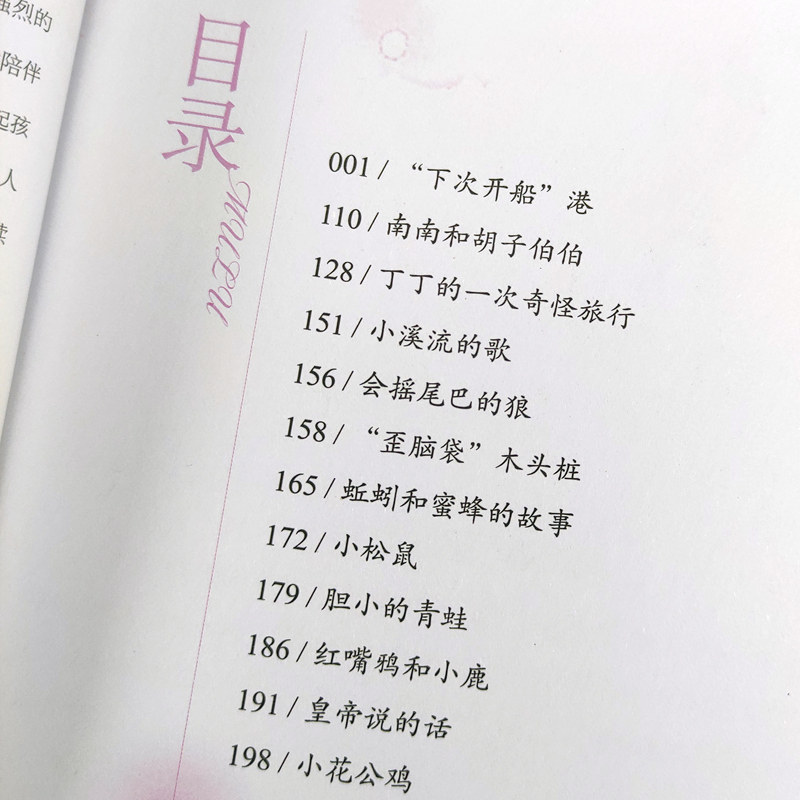 强烈的
陪伴
起孩
人
读
目录
MULU
001 / “下次开船”港
110 / 南南和胡子伯伯
128 / 丁丁的一次奇怪旅行
151 / 小溪流的歌
156 / 会摇尾巴的狼
158 / “歪脑袋”木头桩
165 / 蚯蚓和蜜蜂的故事
172 / 小松鼠
179 / 胆小的青蛙
186 / 红嘴鸦和小鹿
191 / 皇帝说的话
198 / 小花公鸡